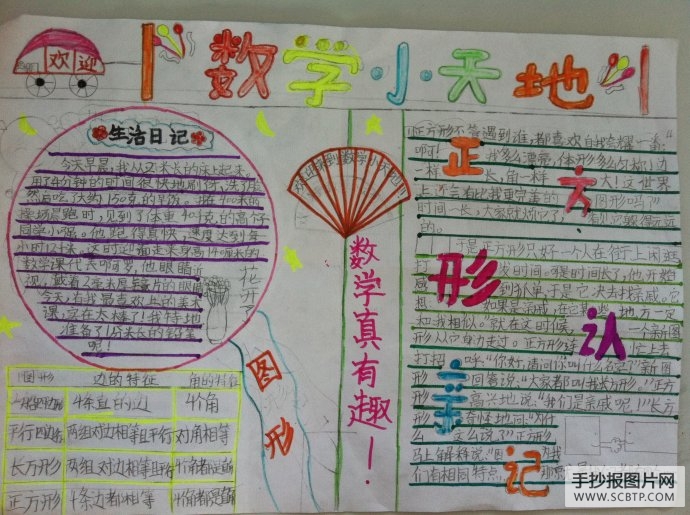 欢迎
数学小天地
生活日记
今天早晨,我从2米长的床上起来。
用了4分钟的时间很快地刷牙、洗了脸
然后吃了大约150克的早饭。
操场晨跑时,见到了体重40千克的高个子
同学小强。他跑得真快,速度达到每
小时12千米。这时迎面走来身高140厘米的
数学课代长叩可罗,他眼睛近
视,戴着2毫米厚镜片的眼镜
今天,有我最喜欢上的美术
课,实在太棒了!我特地
准备了1分米长的铅笔
呢!
花开了
图形
数学真有趣!
图形 边的特征 角的特征
4条直的边 4个角
平行四边形 两组对边相等且平行 对角相等
长方形 两组对边相等且平行 4个角都是直角
正方形 4条边都相等 4个角都是直角
正方形认亲记
正方形不管遇到谁,都喜欢自我炫耀一番:
我多么漂亮,体形多么匀称!边
一样 长,角一样 大!这世界
上还会有比我更完美的 图形吗?"
时间一长,大家就烦它了, 看见它躲得远远
的。
于是正方形只好一个人在街上闲逛
时间。可是时间长了,他开始
感 到孤单,于是它决去找亲戚。它
想: 如果是亲戚,在 地方一定
和我相似。"就在这时候, 一个新图
形从它身边走过。正方形连 忙上去
打招 呼:"你好,请问你叫什么名字?"新图
形 回答说:"大家都叫我长方形。"正方
形 高兴地说:"我们是亲戚呢!"长方
形 奇怪地问:"为什
么 这么说?"正方形
马上解释说:" 为我
们有相同特点,
手抄报图片网
WWW.SCBTP.COM